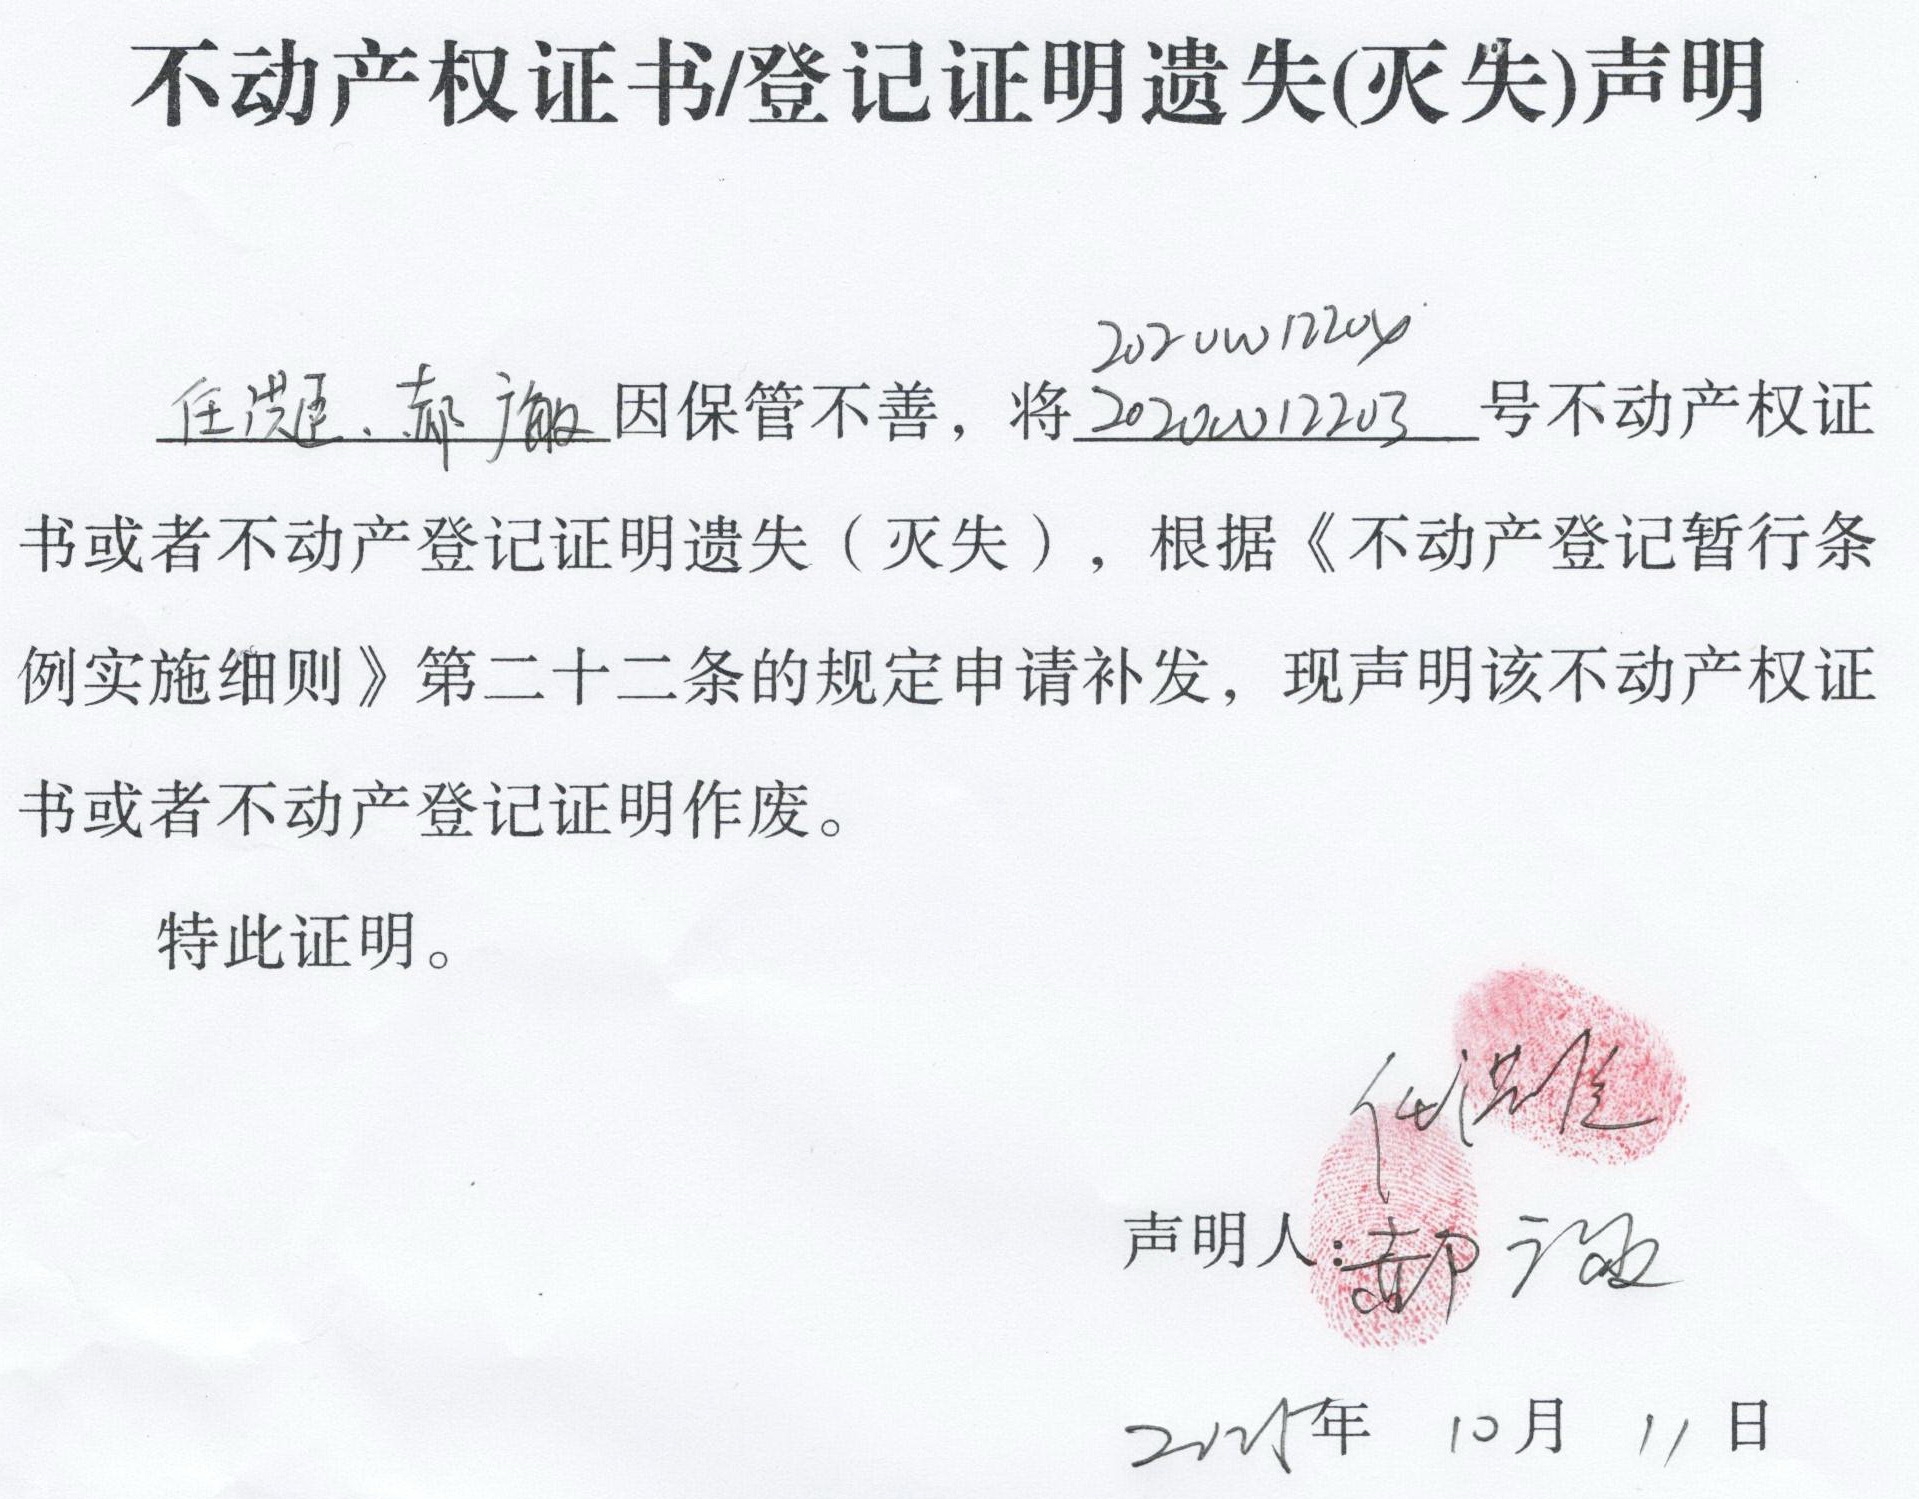 不动产权证书/登记证明遗失(灭失)声明
2020W12204
任洪、郝敏因保管不善，将2020W12203号不动产权证
书或者不动产登记证明遗失（灭失），根据《不动产登记暂行条
例实施细则》第二十二条的规定申请补发，现声明该不动产权证
书或者不动产登记证明作废。
特此证明。
任洪
声明人：郝敏
2025年 10月 11日